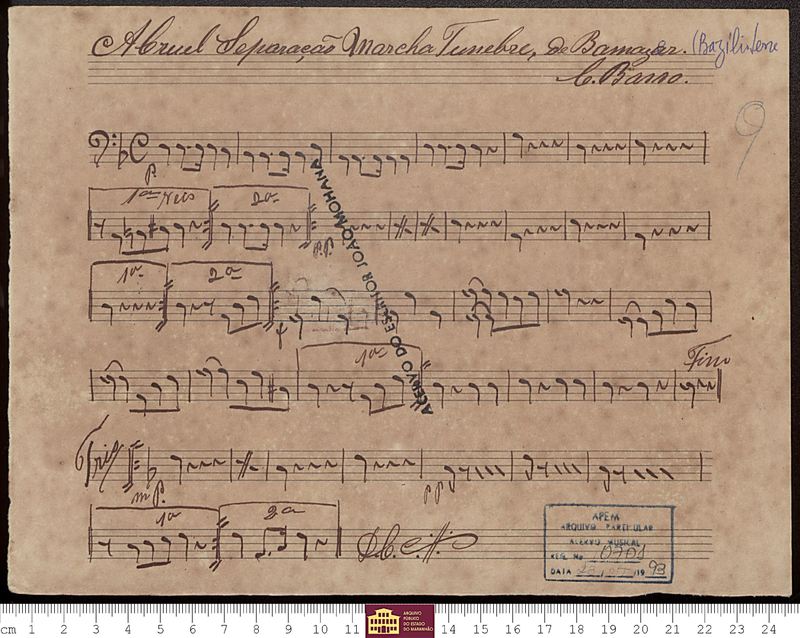 A Cruel Separação Marcha Funebre, de Bamazer. (Bazilio Serra
C. Basso.
9
p
1ª Veis 2ª
p.p.
1ª 2ª
f
1ª
Fim
Trio
m p.
pp
1ª 2ª
D.C.
ACERVO DO ESCRITOR JOÃO MOHANA
APEM
ARQUIVO PARTICULAR
ACERVO MUSICAL
REG. No 0701
DATA 19 93
cm 1 2 3 4 5 6 7 8 9 10 11 14 15 16 17 18 19 20 21 22 23 24
ARQUIVO
PÚBLICO
DO ESTADO
DO MARANHÃO